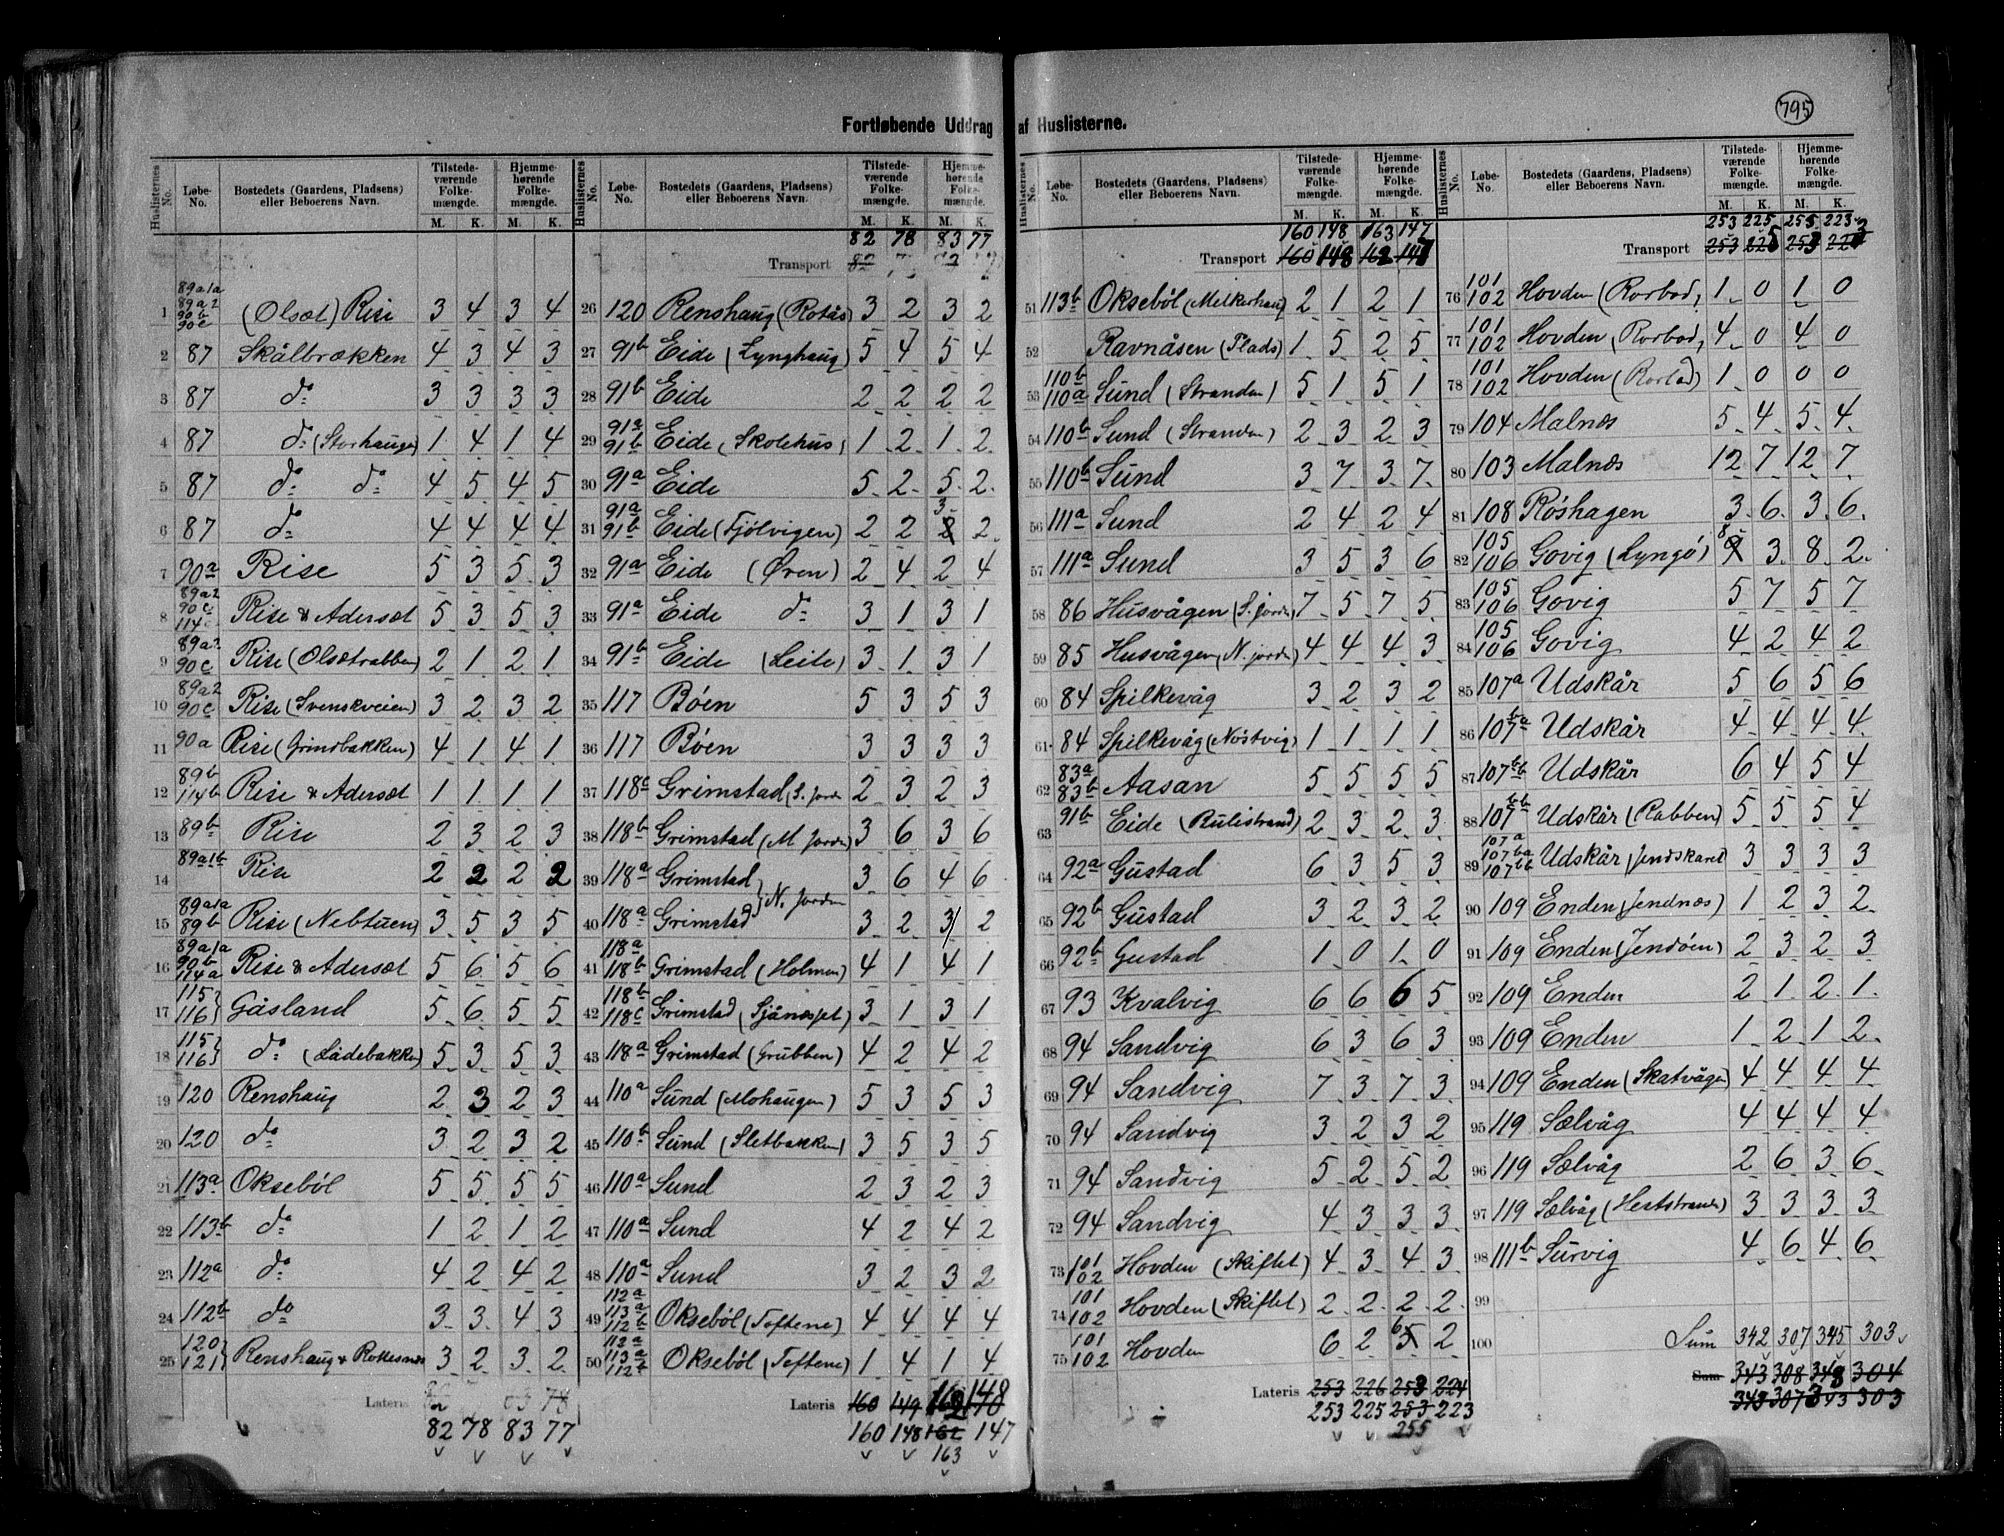 795
Fortløbende Uddrag af Huslisterne.
Huslisternes No. Løbe-No. Bostedets (Gaardens, Pladsens) eller Beboerens Navn. Tilstedeværende Folkemængde. M. K. Hjemmehørende Folkemængde. M. K.
1 89a1a 89a2 90b 90c (Olsæt) Rise 3 4 3 4
2 87 Skålbrækken 4 3 4 3
3 87 do 3 3 3 3
4 87 do (Storhaugen) 1 4 1 4
5 87 do do 4 5 4 5
6 87 do 4 4 4 4
7 90a Rise 5 3 5 3
8 89a2 90c 114c Rise & Adersæt 5 3 5 3
9 89a2 90c Rise (Olsætrabben) 2 1 2 1
10 89a2 90c Rise (Svenskveien) 3 2 3 2
11 90a Rise (Grindbakken) 4 1 4 1
12 89b 114b Rise & Adersæt 1 1 1 1
13 89b Rise 2 3 2 3
14 89a1b Rise 2 2 2 2
15 89a1a 89b Rise (Nebtuen) 3 5 3 5
16 89a1a 90b 114a Rise & Adersæt 5 6 5 6
17 115 116 Gåsland 5 6 5 5
18 115 116 do (Ladebakken) 5 3 5 3
19 120 Renshaug 2 3 2 3
20 120 do 3 2 3 2
21 113a Oksebøl 5 5 5 5
22 113b do 1 2 1 2
23 112a do 4 2 4 2
24 112b do 3 3 4 3
25 120 121 Renshaug & Rokesnæs 3 2 3 2
Lateris
82 78 83 77
Huslisternes No. Løbe-No. Bostedets (Gaardens, Pladsens) eller Beboerens Navn. Tilstedeværende Folkemængde. M. K. Hjemmehørende Folkemængde. M. K.
82 78 83 77
Transport
26 120 Renshaug (Rotås) 3 2 3 2
27 91b Eide (Lynghaug) 5 4 5 4
28 91b Eide 2 2 2 2
29 91a 91b Eide (Skolehus) 1 2 1 2
30 91a Eide 5 2 5 2
31 91a 91b Eide (Fjølvigen) 2 2 3 2
32 91a Eide (Øren) 2 4 2 4
33 91a Eide do 3 1 3 1
34 91b Eide (Leite) 3 1 3 1
35 117 Bøen 5 3 5 3
36 117 Bøen 3 3 3 3
37 118c Grimstad, S. Jorden 2 3 2 3
38 118b Grimstad (M Jorden) 3 6 3 6
39 118a Grimstad 3 6 4 6
N. Jorden
40 118a Grimstad 3 2 3 2
41 118a 118b Grimstad (Holmen) 4 1 4 1
42 118b 118c Grimstad 3 1 3 1
43 118a Grimstad (Grubben) 4 2 4 2
44 110a Sund (Mohaugen) 5 3 5 3
45 110b Sund (Sletbakken) 3 5 3 5
46 110a Sund 2 3 2 3
47 110a Sund 4 2 4 2
48 110a Sund 3 2 3 2
49 112a 113a 112b Oksebøl (Toftene) 4 4 4 4
50 112a 113a 112b Oksebøl (Toftene) 1 4 1 4
Lateris 160 149 162 148
160 148 162 147
163
Huslisternes No. Løbe-No. Bostedets (Gaardens, Pladsens) eller Beboerens Navn. Tilstedeværende Folkemængde. M. K. Hjemmehørende Folkemængde. M. K.
160 148 163 147
Transport 160 148 162 147
51 113b Oksebøl (Melkerhaug) 2 1 2 1
52 Ravnåsen (Plads) 1 5 2 5
53 110b 110a Sund (Stranden) 5 1 5 1
54 110b Sund (Stranden) 2 3 2 3
55 110b Sund 3 7 3 7
56 111a Sund 2 4 2 4
57 111a Sund 3 5 3 6
58 86 Husvågen (S. jorden) 7 5 7 5
59 85 Husvågen (N. jorden) 4 4 4 3
60 84 Spilkevåg 3 2 3 2
61 84 Spilkevåg (Nøstvig) 1 1 1 1
62 83a 83b Aasan 5 5 5 5
63 91b Eide (Rulistrand) 2 3 2 3
64 92a Gustad 6 3 5 3
65 92b Gustad 3 2 3 2
66 92b Gustad 1 0 1 0
67 93 Kvalvig 6 6 6 5
68 94 Sandvig 6 3 6 3
69 94 Sandvig 7 3 7 3
70 94 Sandvig 3 2 3 2
71 94 Sandvig 5 2 5 2
72 94 Sandvig 4 3 3 3
73 101 102 Hovden (Skiftet) 4 3 4 3
74 101 102 Hovden (Skiftet) 2 2 2 2
75 101 102 Hovden 6 2 6 5 2
Lateris 253 226 253 224
253 225 253 223
255
Huslisternes No. Løbe-No. Bostedets (Gaardens, Pladsens) eller Beboerens Navn. Tilstedeværende Folkemængde. M. K. Hjemmehørende Folkemængde. M. K.
253 225 255 223
Transport 253 225 253 223
76 101 102 Hovden (Rorbod) 1 0 1 0
77 101 102 Hovden (Rorbod) 4 0 4 0
78 101 102 Hovden (Rorbod) 1 0 0 0
79 104 Malnæs 5 4 5 4
80 103 Malnæs 12 7 12 7
81 108 Røshagen 3 6 3 6
82 105 106 Govig (Lyngø) 8 9 3 8 2
83 105 106 Govig 5 7 5 7
84 105 106 Govig 4 2 4 2
85 107a Udskår 5 6 5 6
86 107ba Udskår 4 4 4 4
87 107bb Udskår 6 4 5 4
88 107bb Udskår (Rabben) 5 5 5 4
89 107a 107ba 107bb Udskår (Jendskaret 3 3 3 3
90 109 Enden (Jendnæs) 1 2 3 2
91 109 Enden (Jendøen) 2 3 2 3
92 109 Enden 2 1 2 1
93 109 Enden 1 2 1 2
94 109 Enden (Skatvågen) 4 4 4 4
95 119 Sælvåg 4 4 4 4
96 119 Sælvåg 2 6 3 6
97 119 Sælvåg (Heststranden) 3 3 3 3
98 111b Survig 4 6 4 6
99
100 Sum 342 307 345 303
Sum 343 308 348 304
343 307 343 303